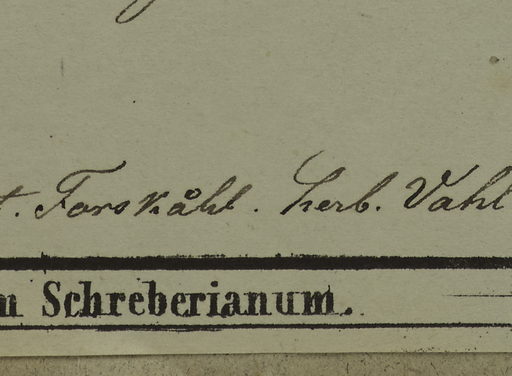 t. Forskåhl. herb. Vahl
m Schreberianum.